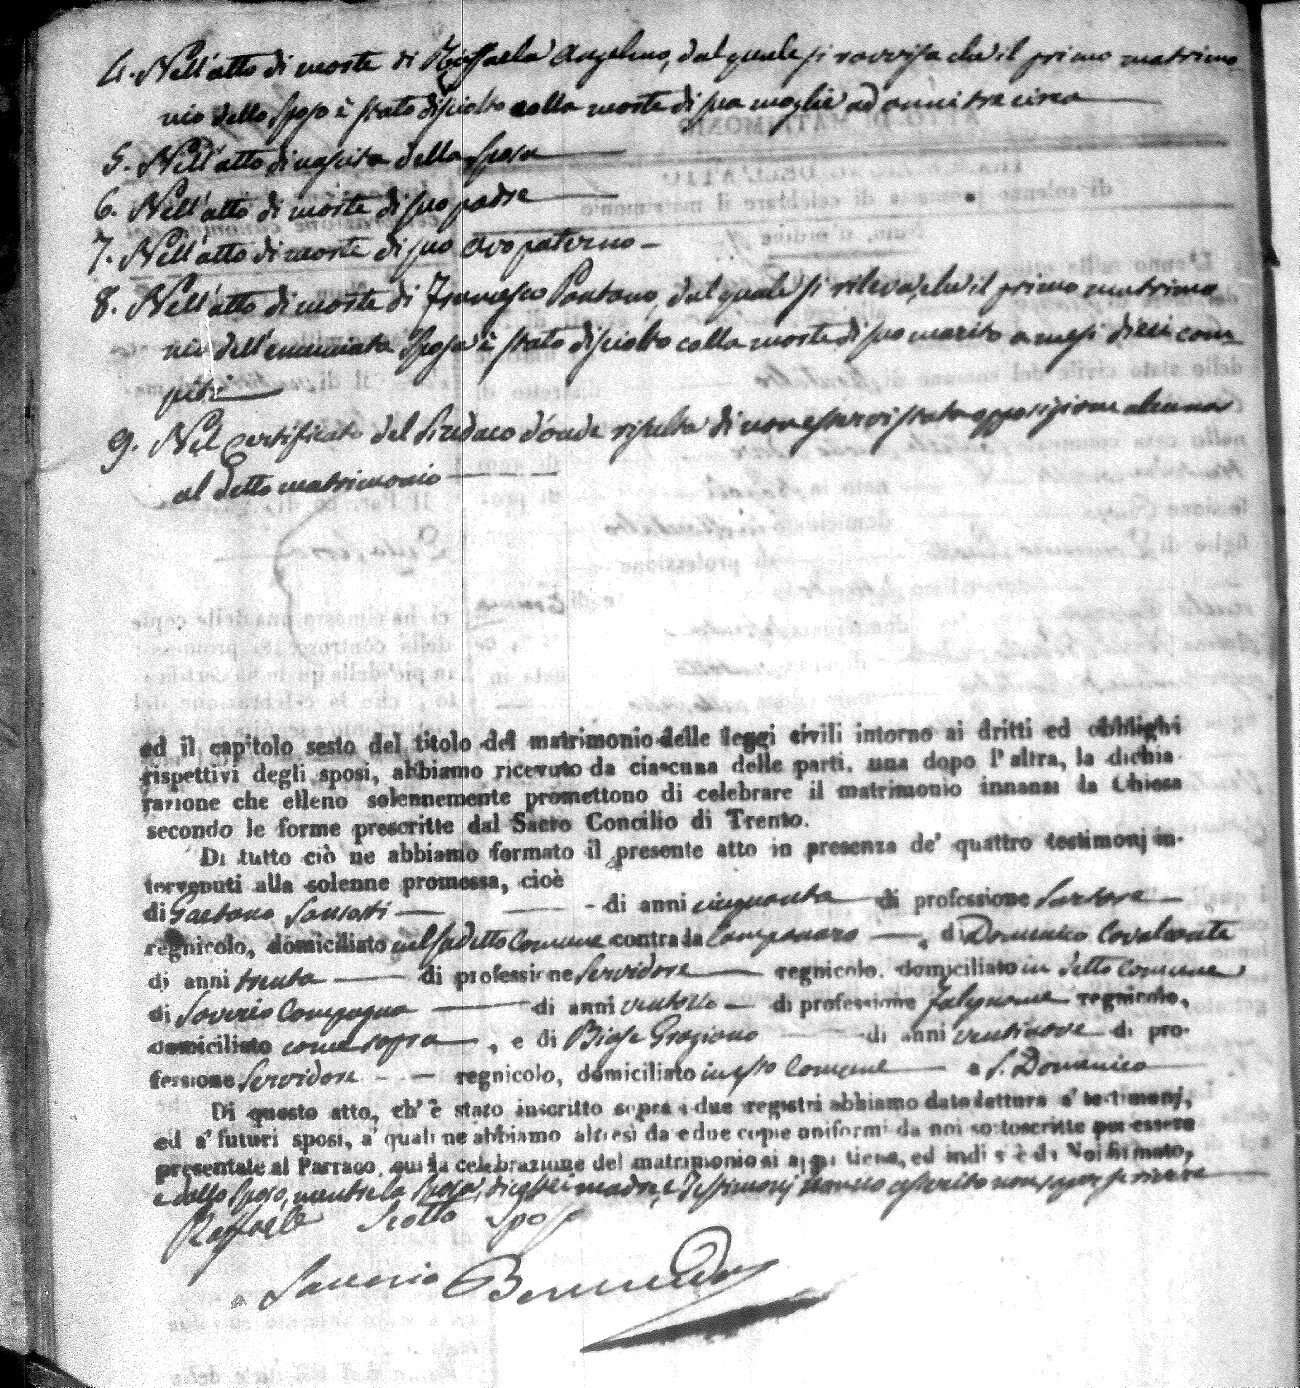 4. Nell'atto di morte di Raffaela Angelino, dal quale si ravvisa che il primo matrimo-
nio dello Sposo è stato disciolto colla morte di sua moglie ad anni tre circa
5. Nell'atto di nascita della Sposa
6. Nell'atto di morte di suo padre
7. Nell'atto di morte di suo avo paterno
8. Nell'atto di morte di Francesco Pantano, dal quale si rileva, che il primo matrimo
nio dell'enunciata Sposa è stato disciolto colla morte di suo marito a mesi dieci com-
piti
9. Nel Certificato del Sindaco d'onde risulta di non esservi stata opposizione alcuna
al detto matrimonio
ed il capitolo sesto del titolo del matrimonio delle leggi civili intorno ai dritti ed obblighi
rispettivi degli sposi, abbiamo ricevuto da ciascuna delle parti, una dopo l'altra, la dichia-
razione che elleno solennemente promettono di celebrare il matrimonio innanzi la Chiesa
secondo le forme prescritte dal Sacro Concilio di Trento.
Di tutto ciò ne abbiamo formato il presente atto in presenza de' quattro testimonj in-
tervenuti alla solenne promessa, cioè
di Gaetano di anni cinquanta di professione Sartore
regnicolo, domiciliato nel sudetto Comune contrada Campanaro, di Domenico Cavalcante
di anni trenta di professione Servidore regnicolo, domiciliato in detto Comune
di Saverio Compagno di anni ventotto di professione Falegname regnicolo,
domiciliato come sopra, e di Biase Graziano di anni ventinove di pro-
fessione Servidore regnicolo, domiciliato in questo Comune a S. Domenico
Di questo atto, ch'è stato inscritto sopra i due registri abbiamo dato lettura a' testimonj,
ed a' futuri sposi, a' quali ne abbiamo altresì date due copie uniformi da noi sottoscritte per essere
presentate al Parroco, cui la celebrazione del matrimonio si appartiene, ed indi s'è da Noi firmato,
e dallo Sposo, mentre la Sposa, di essi madre, e Testimonj hanno asserito non saper scrivere
Raffaele Scotto Sposo
Saverio